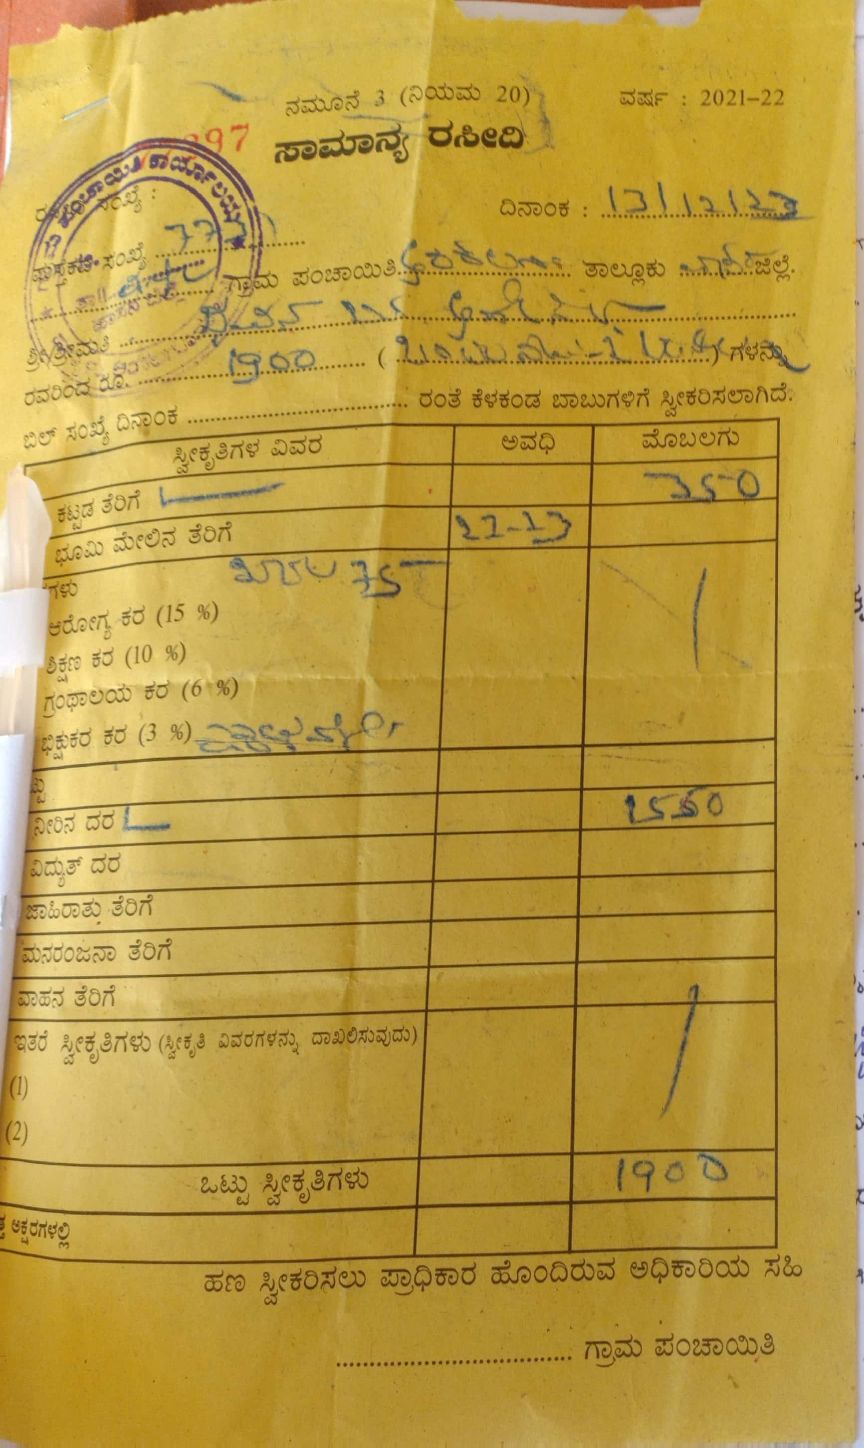 ನಮೂನೆ 3 (ನಿಯಮ 20) ವರ್ಷ : 2021-22
397
ಸಾಮಾನ್ಯ ರಸೀದಿ
ಪಂಚಾಯಿತಿ ಕಾರ್ಯಾಲಯ
ಸಂಖ್ಯೆ : ದಿನಾಂಕ : 13/12/23
ಪುಸ್ತಕದ ಸಂಖ್ಯೆ
ಗ್ರಾಮ ಪಂಚಾಯಿತಿ ತಾಲ್ಲೂಕು ಜಿಲ್ಲೆ.
ಶ್ರೀ/ಶ್ರೀಮತಿ
ರವರಿಂದ ರೂ. 1900 ( ) ಗಳನ್ನು
ಬಿಲ್ ಸಂಖ್ಯೆ ದಿನಾಂಕ ರಂತೆ ಕೆಳಕಂಡ ಬಾಬುಗಳಿಗೆ ಸ್ವೀಕರಿಸಲಾಗಿದೆ.
ಸ್ವೀಕೃತಿಗಳ ವಿವರ ಅವಧಿ ಮೊಬಲಗು
ಕಟ್ಟಡ ತೆರಿಗೆ 350
ಭೂಮಿ ಮೇಲಿನ ತೆರಿಗೆ 22-23
ಗಳು 75
ಆರೋಗ್ಯ ಕರ (15 %)
ಶಿಕ್ಷಣ ಕರ (10 %)
ಗ್ರಂಥಾಲಯ ಕರ (6 %)
ಭಿಕ್ಷುಕರ ಕರ (3 %)
ನೀರಿನ ದರ 1550
ವಿದ್ಯುತ್ ದರ
ಜಾಹಿರಾತು ತೆರಿಗೆ
ಮನರಂಜನಾ ತೆರಿಗೆ
ವಾಹನ ತೆರಿಗೆ
ಇತರೆ ಸ್ವೀಕೃತಿಗಳು (ಸ್ವೀಕೃತಿ ವಿವರಗಳನ್ನು ದಾಖಲಿಸುವುದು)
(1)
(2)
ಒಟ್ಟು ಸ್ವೀಕೃತಿಗಳು 1900
ಅಕ್ಷರಗಳಲ್ಲಿ
ಹಣ ಸ್ವೀಕರಿಸಲು ಪ್ರಾಧಿಕಾರ ಹೊಂದಿರುವ ಅಧಿಕಾರಿಯ ಸಹಿ
ಗ್ರಾಮ ಪಂಚಾಯಿತಿ